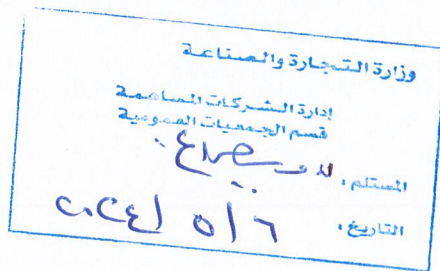 وزارة التجارة والصناعة
إدارة الشركات المساهمة
قسم الجمعيات العمومية
المستلم :
التاريخ : ٢٠٢٤/٥/٦